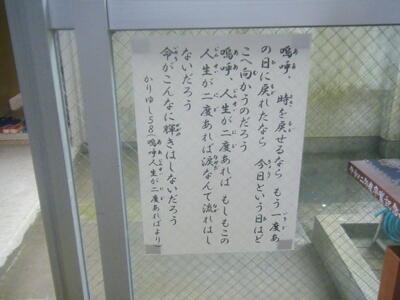 嗚呼、時を戻せるなら もう一度あ
の日に戻れたなら 今日という日はど
こへ向かうのだろう
嗚呼、人生が二度あれば もしもこの
人生が二度あれば涙なんて流れはし
ないだろう
命がこんなに輝きはしないだろう
かりゆし58(嗚呼人生が二度あればより)